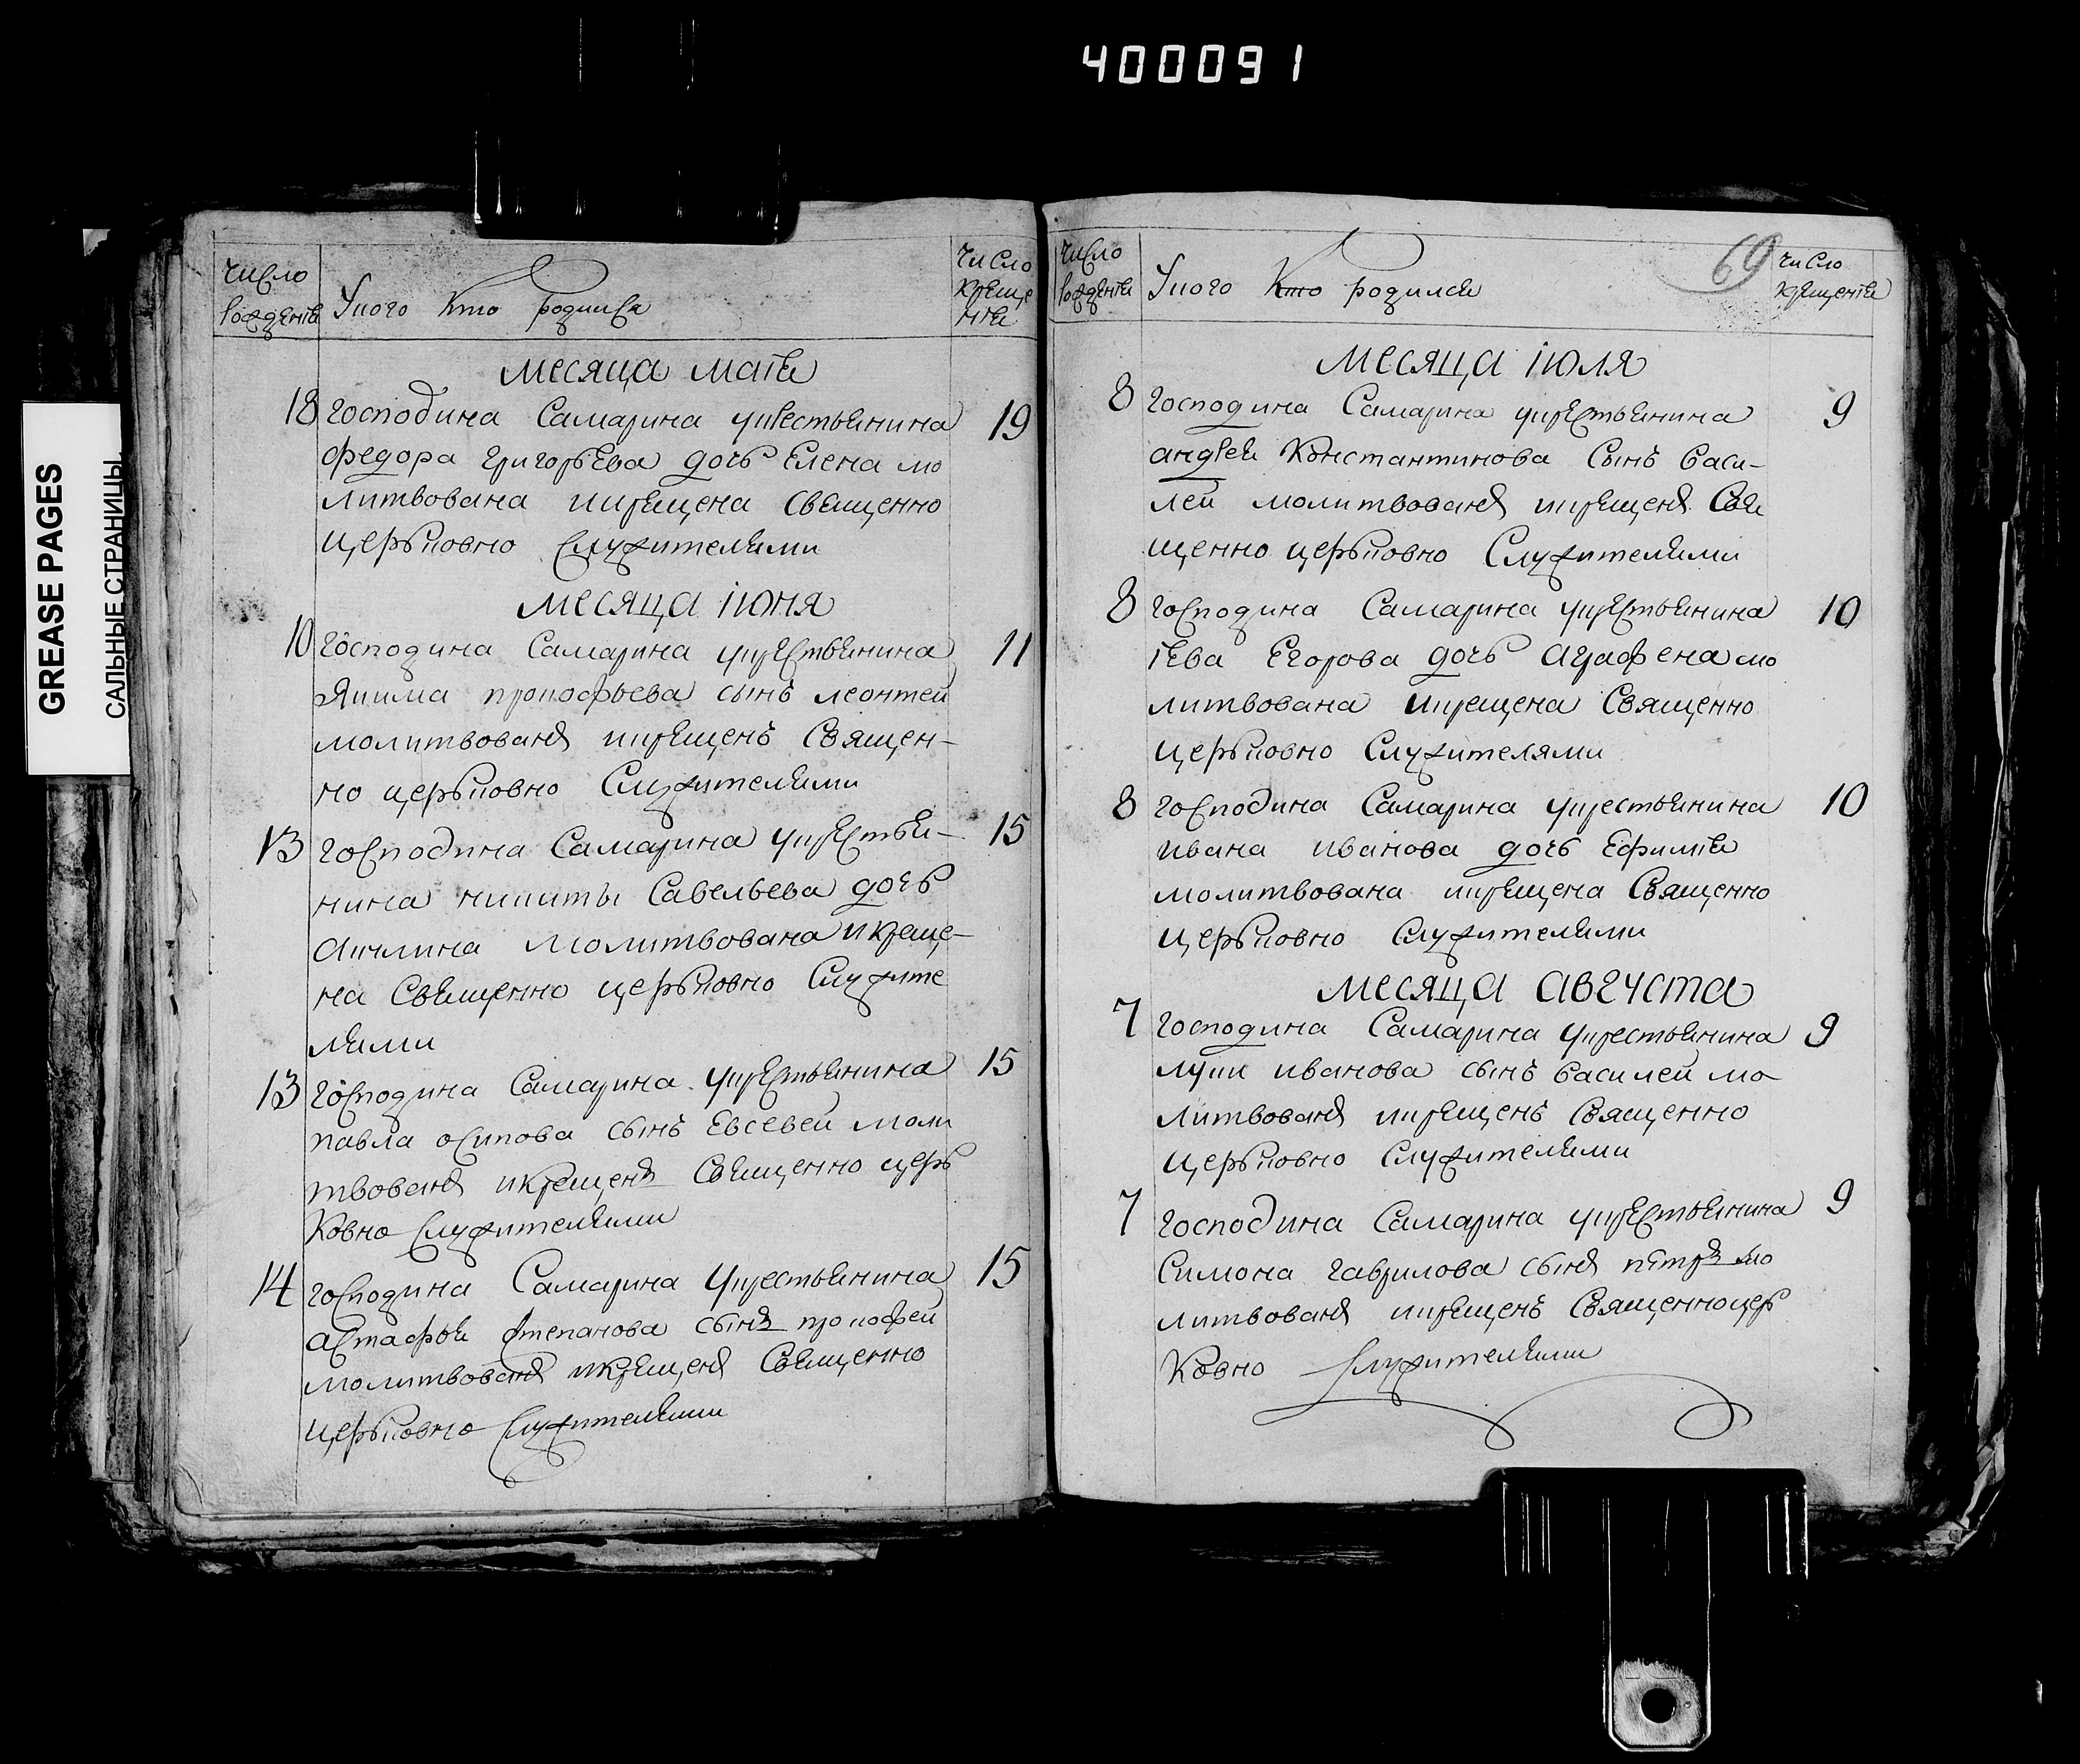 400091
GREASE PAGES
САЛЬНЫЕ СТРАНИЦЫ.
число рожденiя
Укого кто родился
число крещенiя
месяца маiя
18 господина Самарина укрестьянина 19
федора григорьева дочь Елена мо
литвована икрещена священно
церьковно служителями
месяца iюня
10 господина Самарина укрестьянина 11
якима прокофьева сынъ леонтей
молитвованъ икрещенъ священ-
но церьковно служителями
13 господина Самарина укрестья- 15
нина никиты Савельева дочь
акилина молитвована икреще-
на священно церьковно служите
лями
13 господина Самарина укрестьянина 15
павла осипова сынъ Евсевей моли
твованъ икрещенъ священно церь
ковно служителями
14 господина Самарина укрестьянина 15
астафья степанова сынъ прокофей
молитвованъ икрещенъ священно
церьковно служителями
число рожденiя
Укого кто родился
69
число крещенiя
месяца iюля
8 господина Самарина укрестьянина 9
андрея константинова сынъ васи-
лей молитвованъ икрещенъ свя
щенно церьковно служителями
8 господина Самарина укрестьянина 10
iева Егорова дочь аграфена мо
литвована икрещена священно
церьковно служителями
8 господина Самарина укрестьянина 10
ивана иванова дочь Ефимiя
молитвована икрещена священно
церьковно служителями
месяца августа
7 господина Самарина укрестьянина 9
луки иванова сынъ василей мо-
литвованъ икрещенъ священно
церьковно служителями
7 господина Самарина укрестьянина 9
Симона гаврилова сынъ петръ мо
литвованъ икрещенъ священноцер
ковно служителями